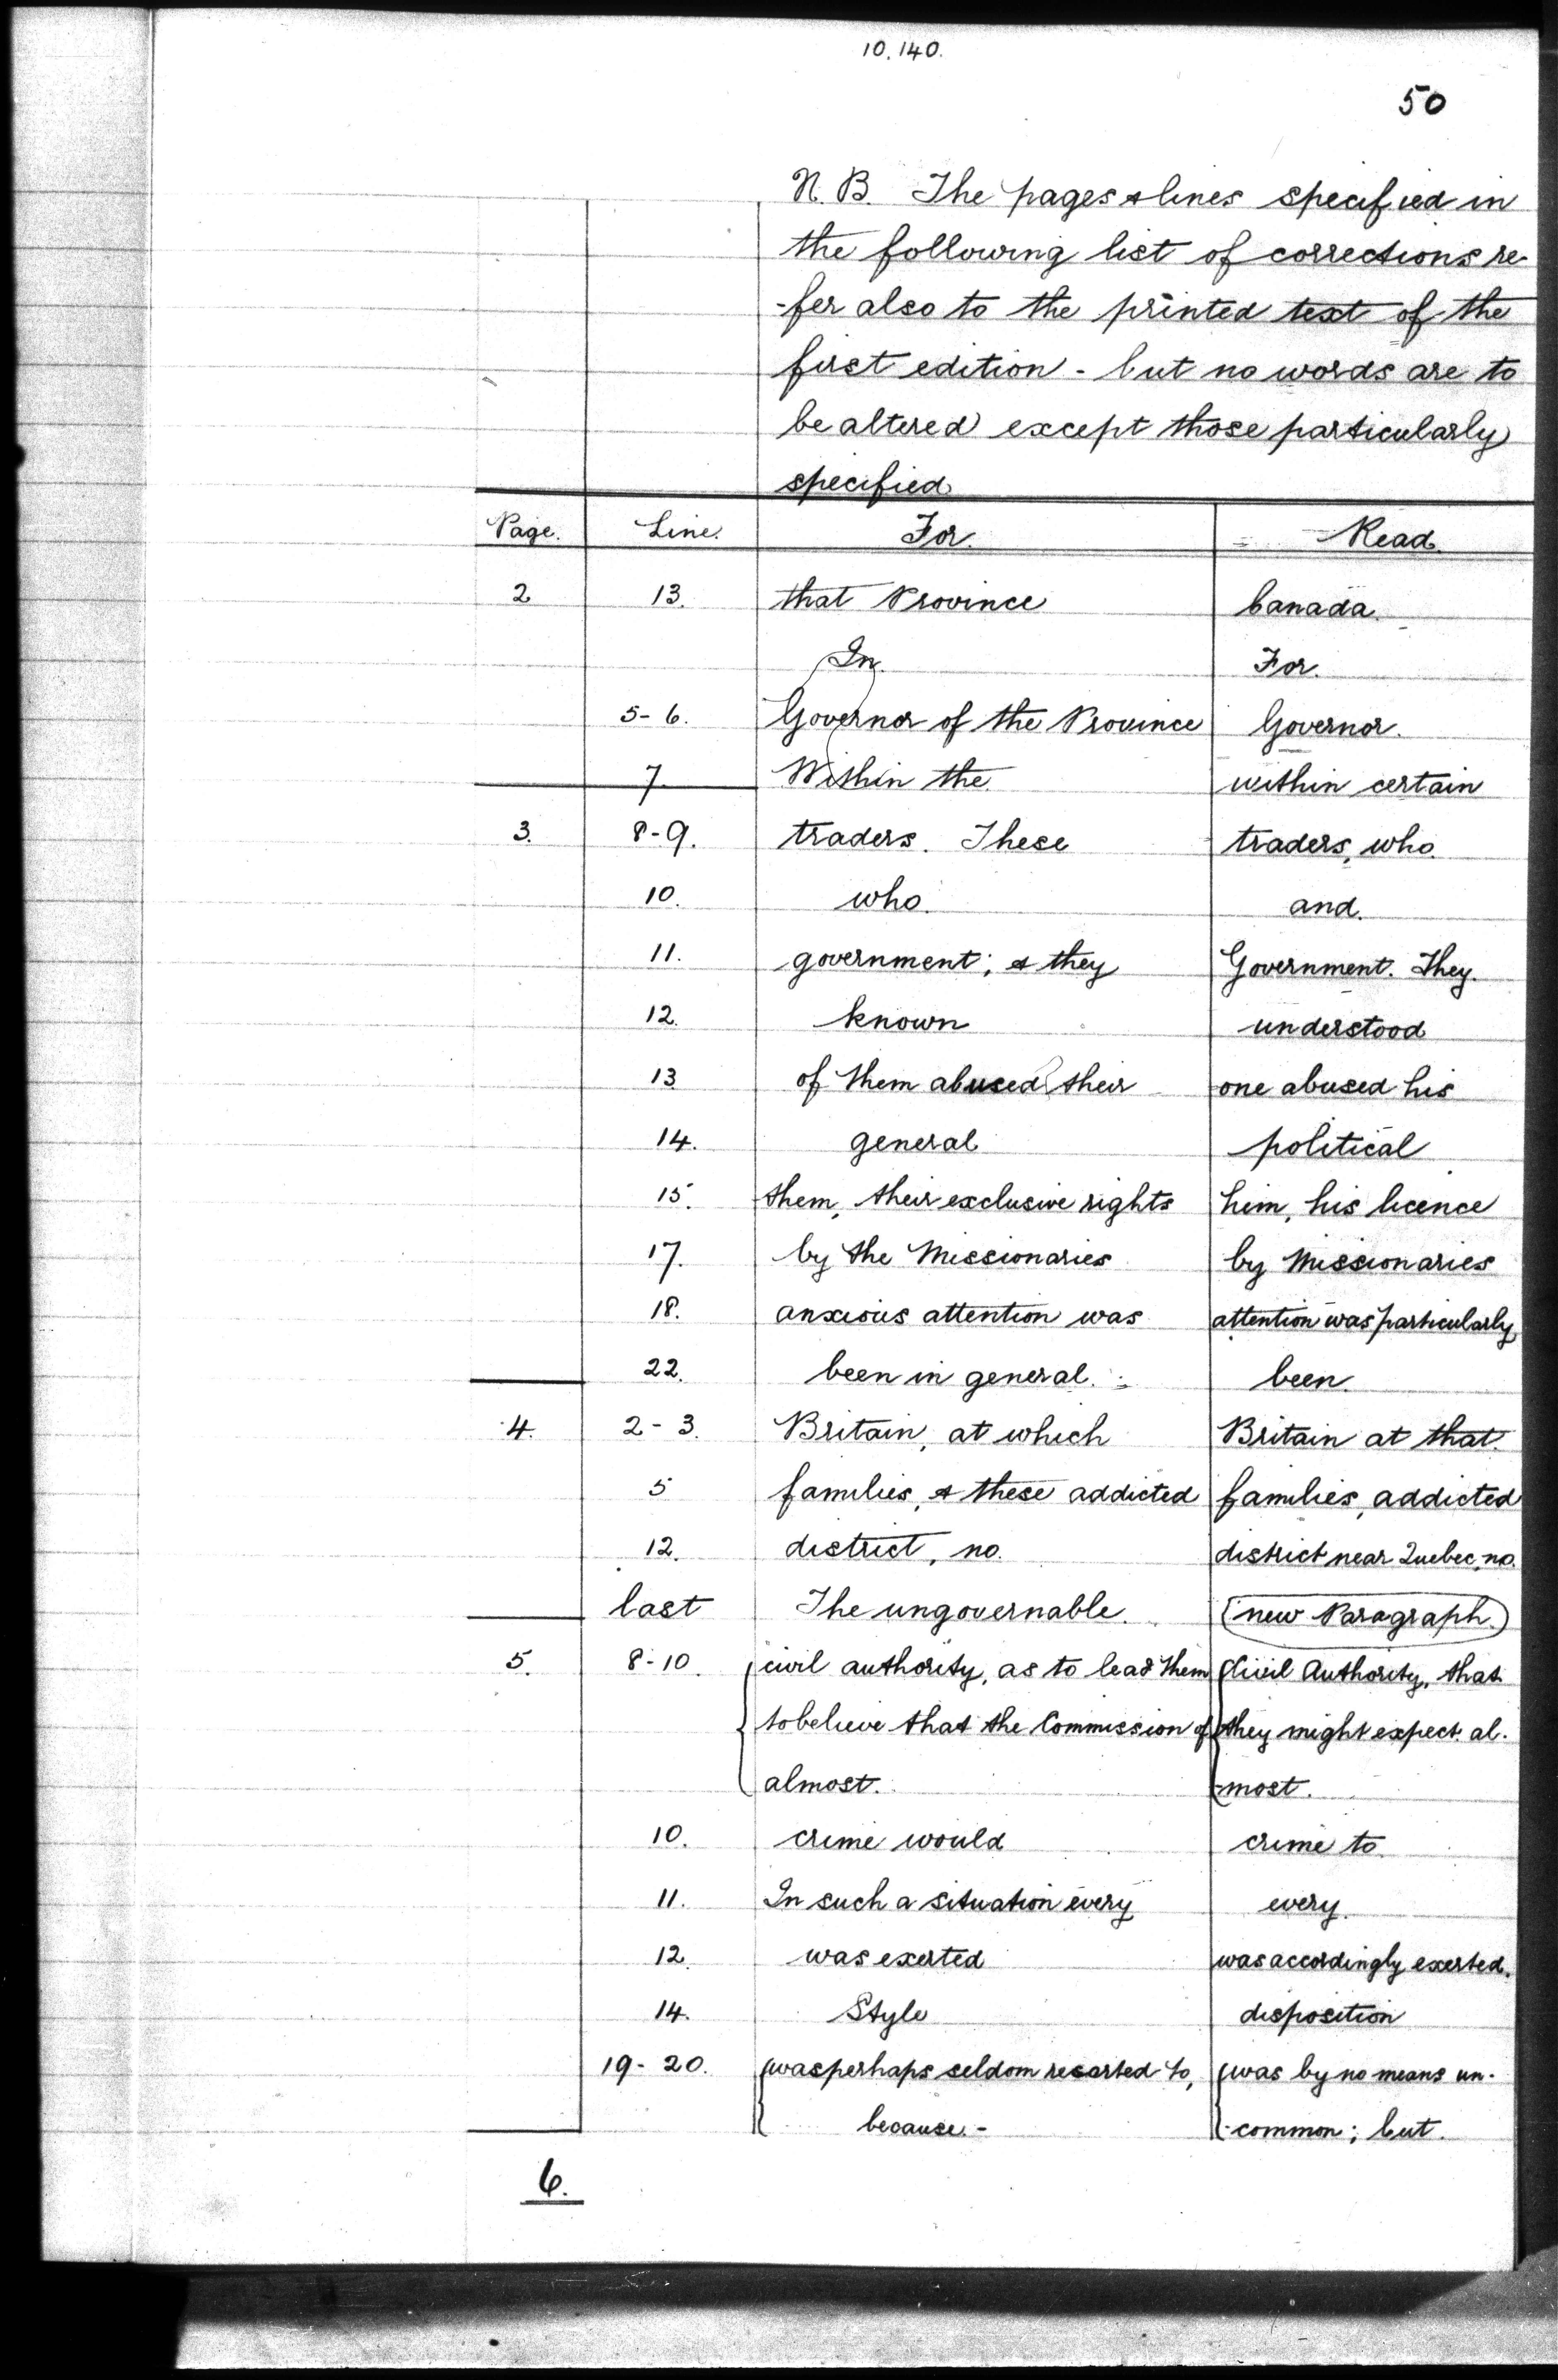 10,140.
50
N.B. The pages & lines specified in
the following list of corrections re-
-fer also to the printed text of the
first edition - but no words are to
be altered except those particularly
specified
Page. Line. For. Read.
2 13. that Province Canada.
In. For.
5-6. Governor of the Province Governor.
7. Within the within certain
3. 8-9. traders. These traders, who
10. who. and.
11. government; & they Government. They.
12. known understood
13 of them abused their one abused his
14. general political
15. them, their exclusive rights him, his licence
17. by the Missionaries by Missionaries
18. anxious attention was attention was particularly
22. been in general. been.
4. 2-3. Britain, at which Britain at that.
5 families, & these addicted families, addicted
12. district, no. district near Quebec, no.
last The ungovernable. (new Paragraph.)
5. 8-10. civil authority, as to lead them Civil Authority, that
to believe that the Commission of they might expect al-
almost. -most.
10. crime would crime to.
11. In such a situation every every.
12. was exerted was accordingly exerted.
14. Style disposition
19-20. was perhaps seldom resorted to, was by no means un-
because - -common; but.
6.